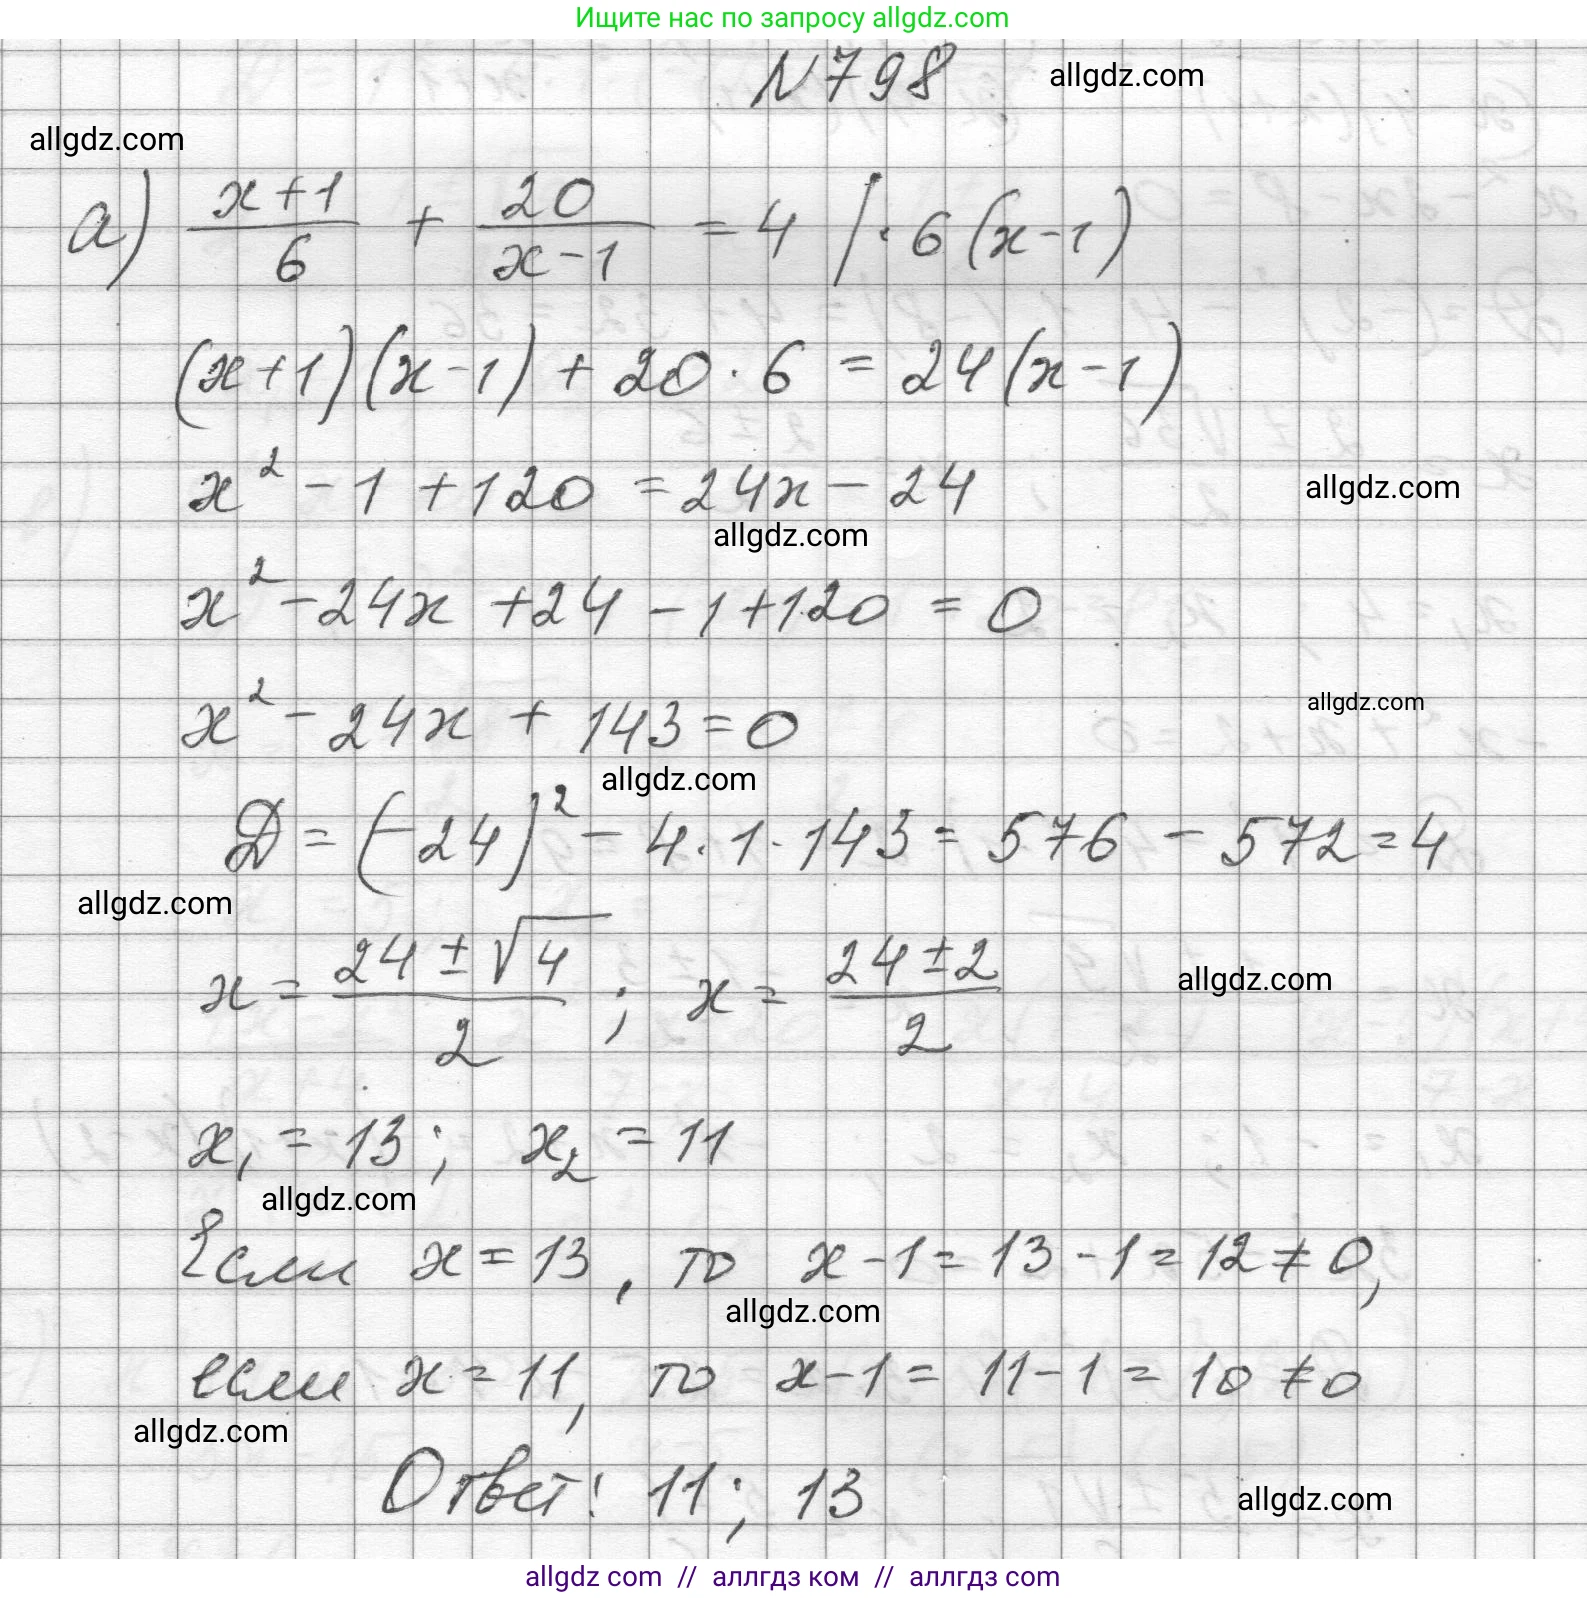 Ищите нас по запросу allgdz.com
N 798 allgdz.com
allgdz.com
а) (x+1)/6 + 20/(x-1) = 4 | · 6(x-1)
(x+1)(x-1) + 20 · 6 = 24(x-1)
x² - 1 + 120 = 24x - 24
allgdz.com
allgdz.com
x² - 24x + 24 - 1 + 120 = 0
allgdz.com
x² - 24x + 143 = 0
allgdz.com
Д = (-24)² - 4 · 1 · 143 = 576 - 572 = 4
allgdz.com
x = (24 ± √4)/2 ; x = (24 ± 2)/2
allgdz.com
x₁ = 13; x₂ = 11
allgdz.com
Если x = 13, то x - 1 = 13 - 1 = 12 ≠ 0,
allgdz.com
если x = 11, то x - 1 = 11 - 1 = 10 ≠ 0
allgdz.com
Ответ: 11; 13
allgdz.com
allgdz com // аллгдз ком // аллгдз com